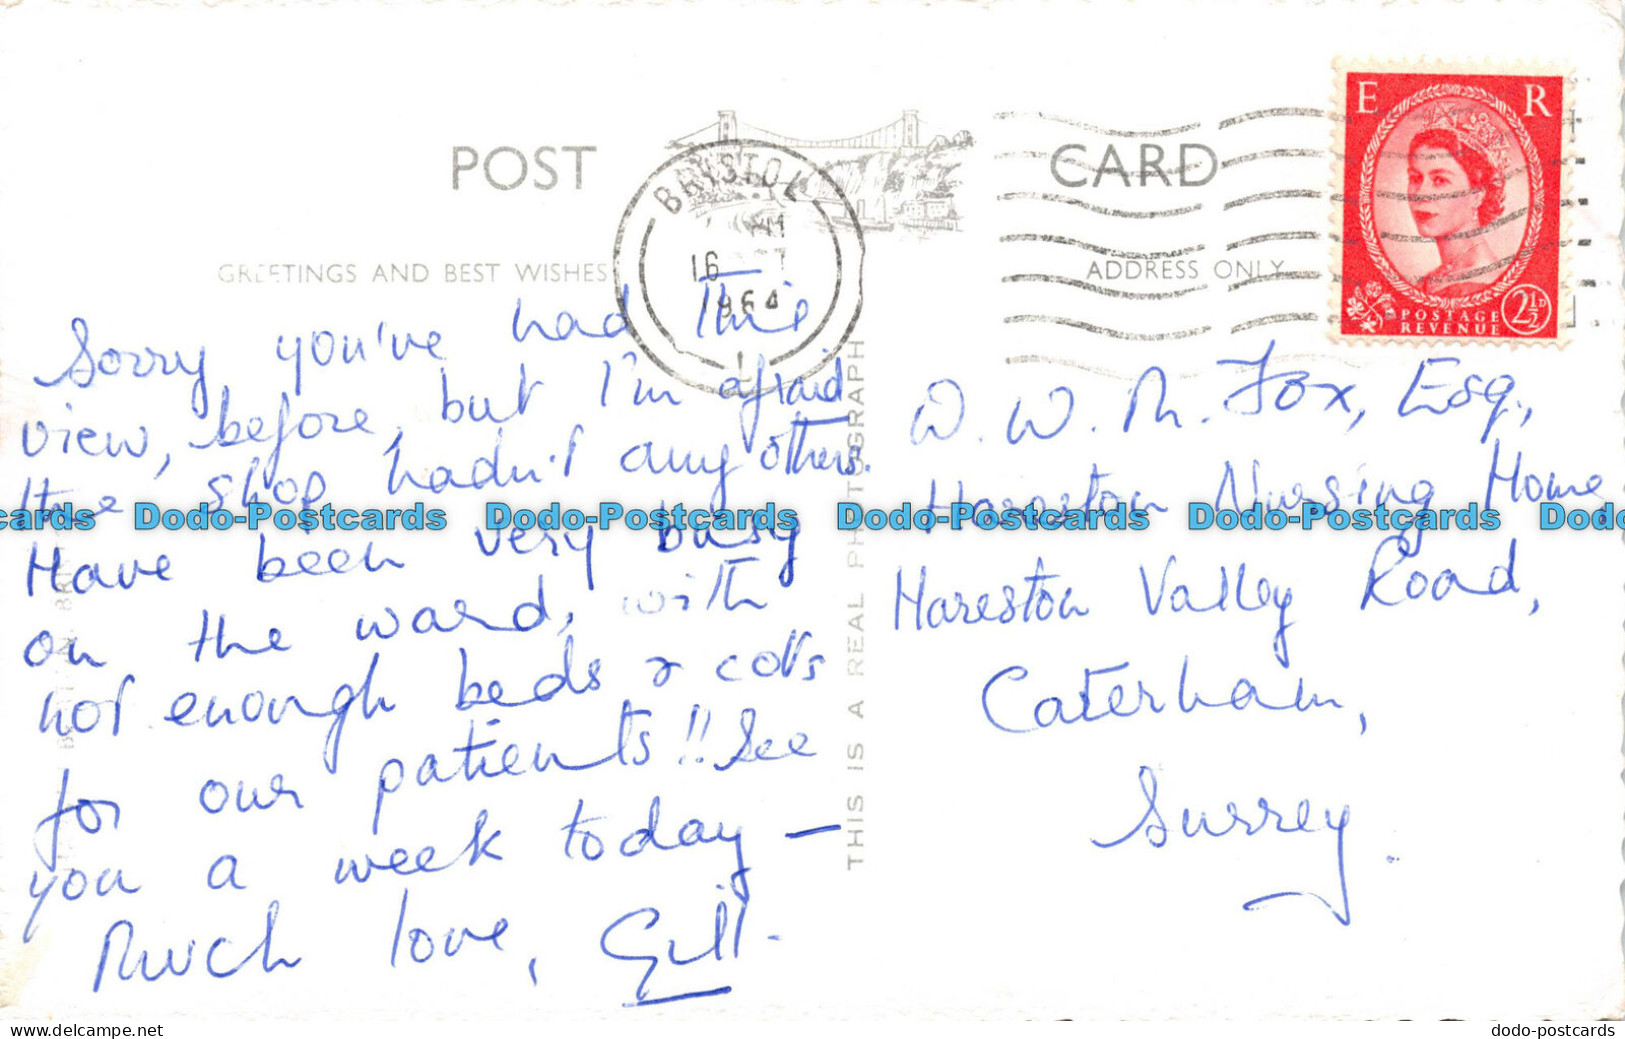 POST CARD
GREETINGS AND BEST WISHES
ADDRESS ONLY
BRISTOL
16
1964
E R
POSTAGE
REVENUE
2½D
THIS IS A REAL PHOTOGRAPH
Sorry you've had this
view, before, but I'm afraid
the shop hadn't any others.
Have been very busy
on the ward, with
not enough beds & cots
for our patients!! See
you a week today —
Much love, Gill.
D. W. M. Fox, Esq.,
Hareston Nursing Home,
Hareston Valley Road,
Caterham,
Surrey.
cards Dodo-Postcards Dodo-Postcards Dodo-Postcards Dodo-Postcards Dodo
www.delcampe.net
dodo-postcards